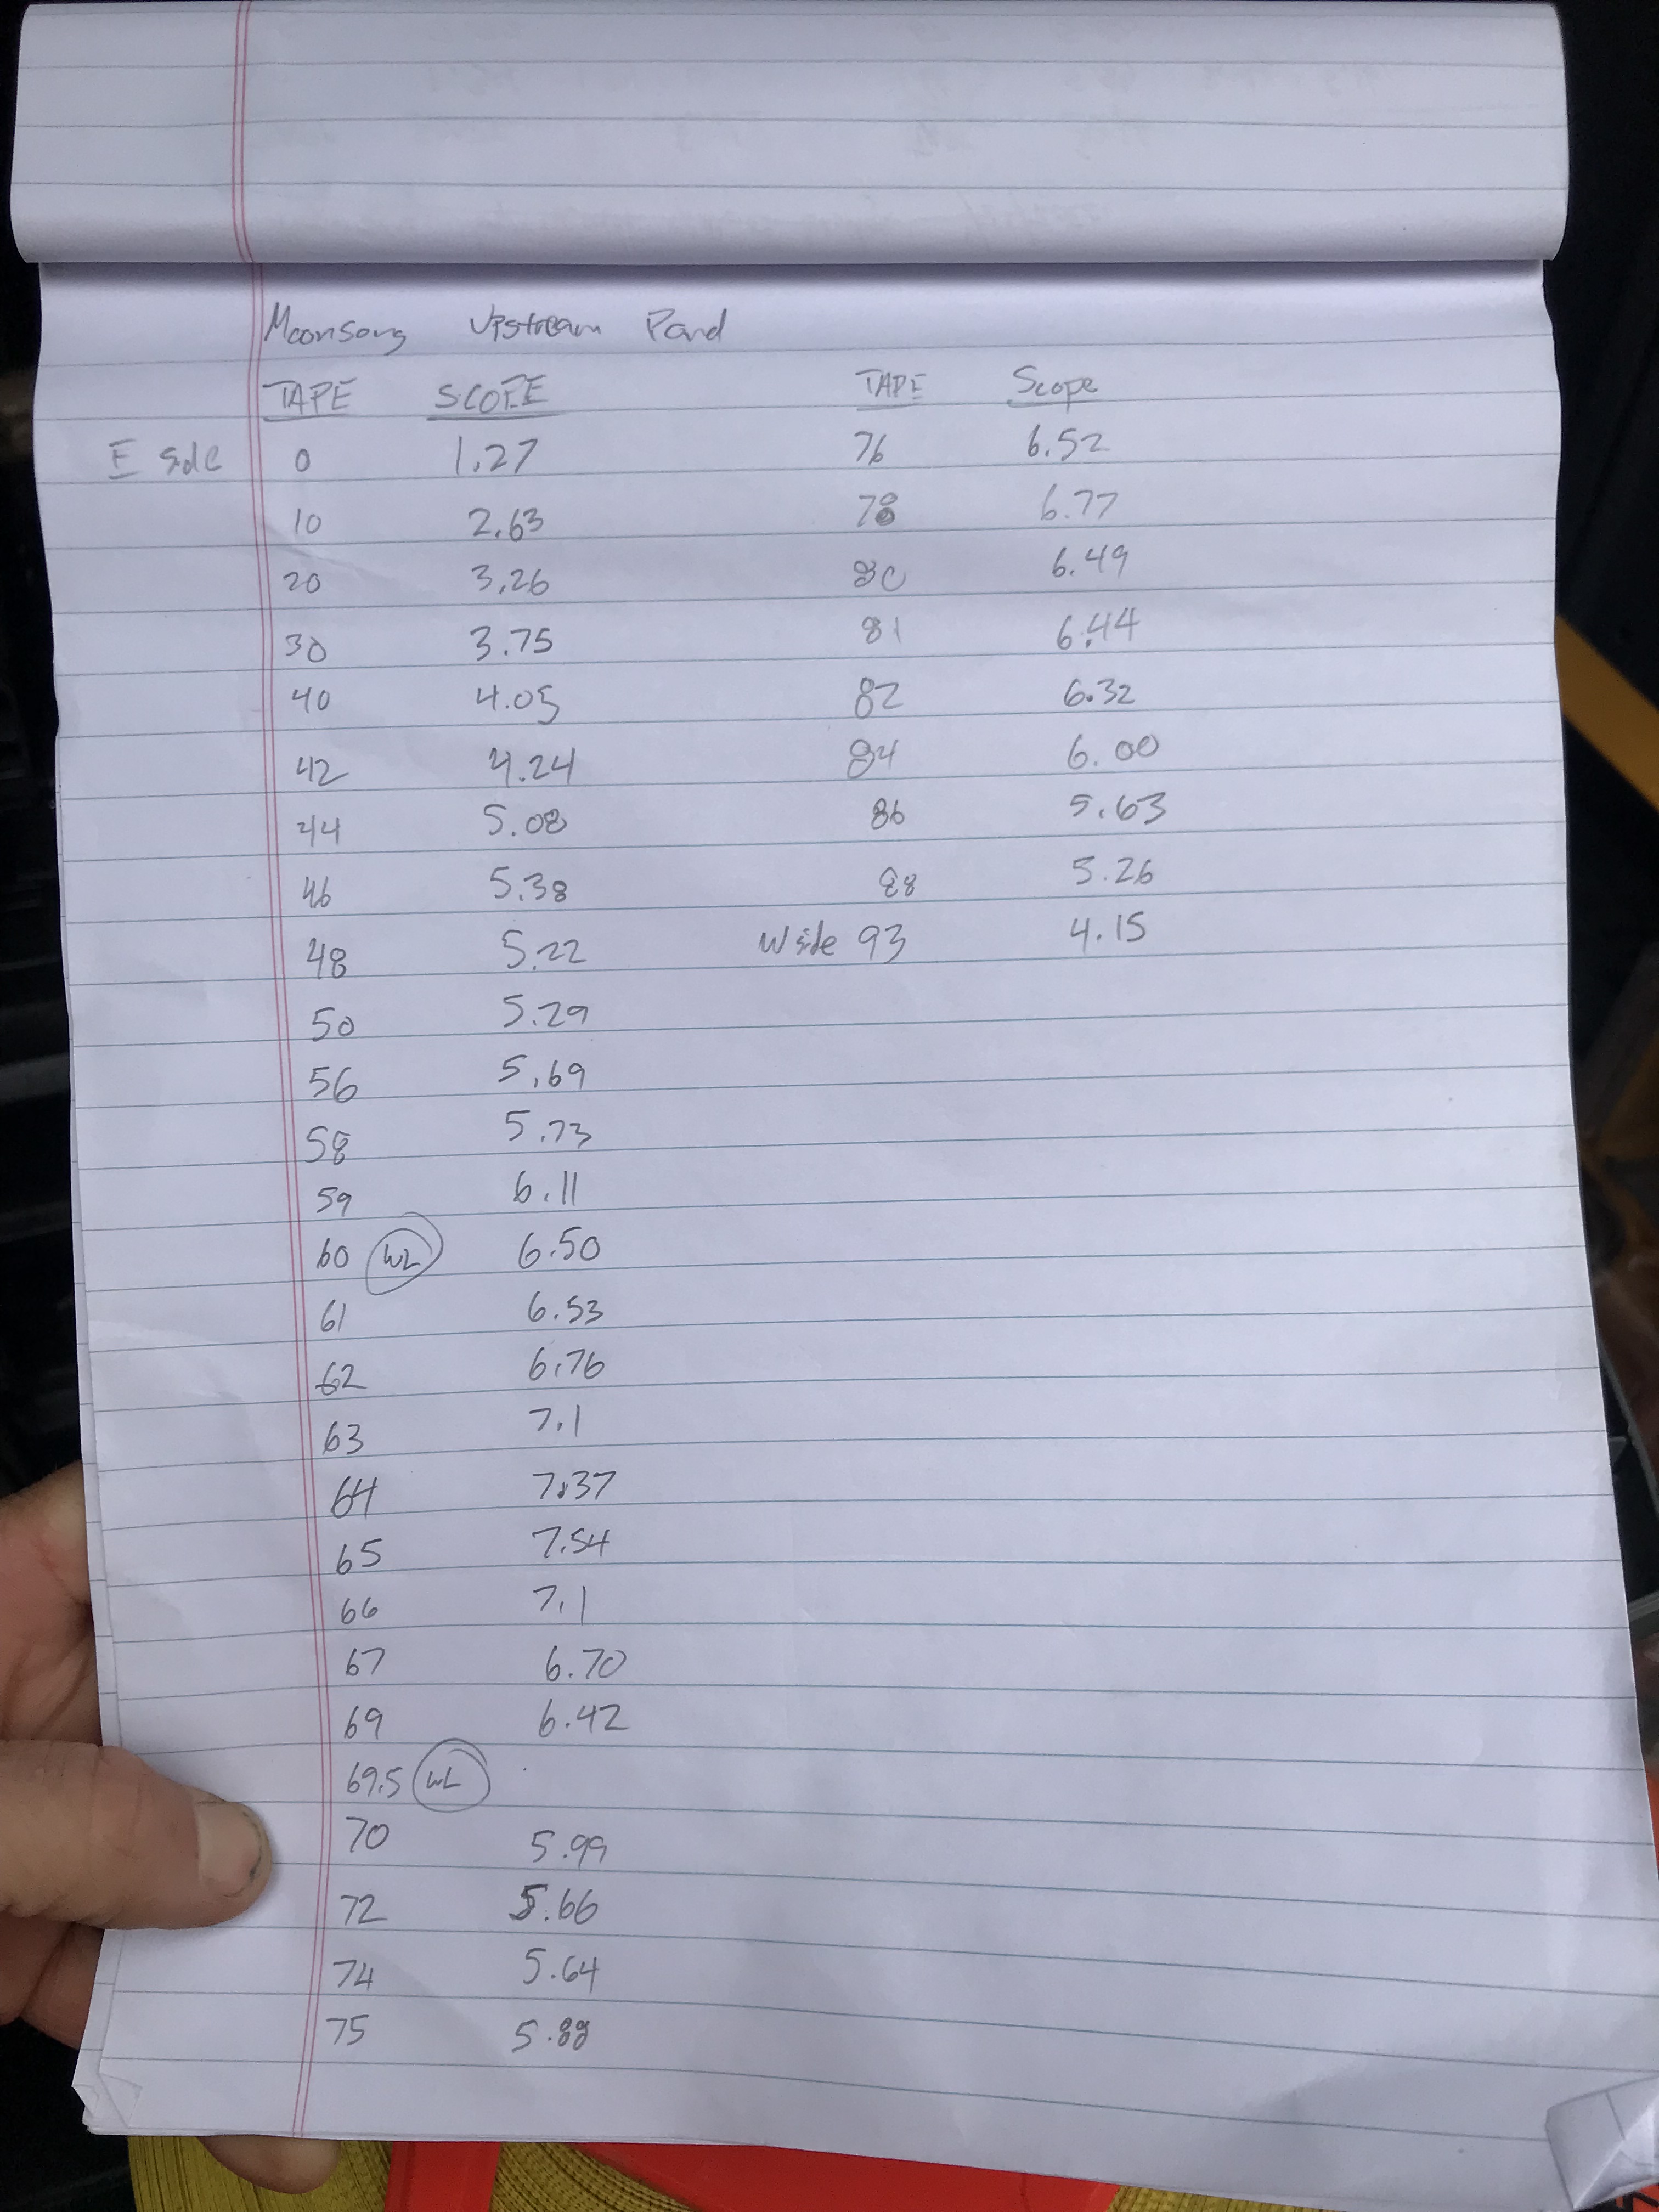 Moonsong Upstream Pond
TAPE SCOPE
E side 0 1.27
10 2.63
20 3.26
30 3.75
40 4.05
42 4.24
44 5.08
46 5.38
48 5.22
50 5.29
56 5.69
58 5.73
59 6.11
60 WL 6.50
61 6.53
62 6.76
63 7.1
64 7.37
65 7.54
66 7.1
67 6.70
69 6.42
69.5 WL
70 5.99
72 5.66
74 5.64
75 5.88
TAPE Scope
76 6.52
78 6.77
80 6.49
81 6.44
82 6.32
84 6.00
86 5.63
88 5.26
W side 93 4.15